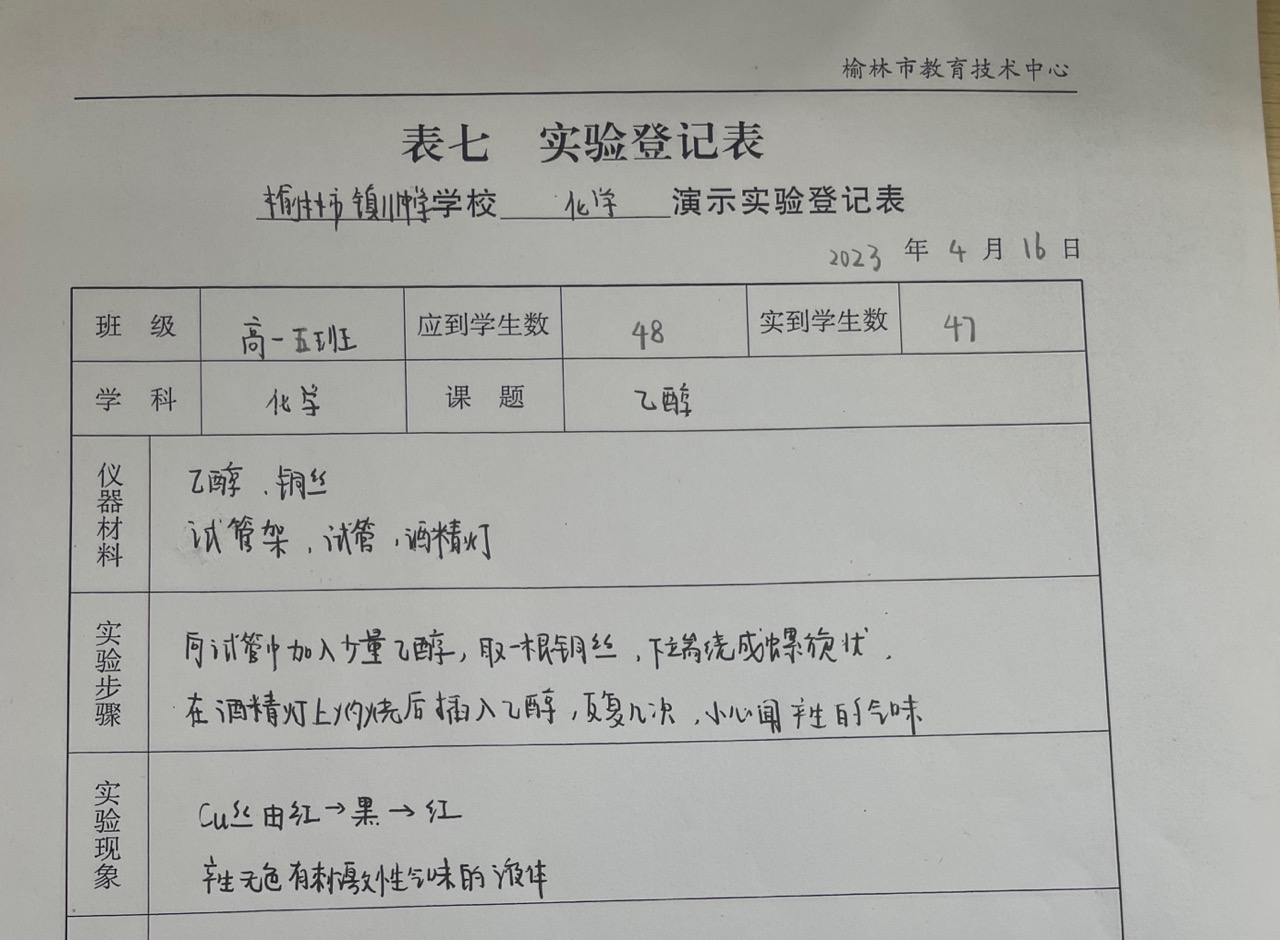 榆林市教育技术中心
表七 实验登记表
榆林市镇川中学学校 化学 演示实验登记表
2023 年 4 月 16 日
班 级 高一五班 应到学生数 48 实到学生数 47
学 科 化学 课 题 乙醇
仪器材料
乙醇、铜丝
试管架,试管,酒精灯
实验步骤
向试管中加入少量乙醇,取一根铜丝,下端绕成螺旋状.
在酒精灯上灼烧后插入乙醇,反复几次,小心闻产生的气味
实验现象
Cu丝由红→黑→红
产生无色有刺激性气味的液体